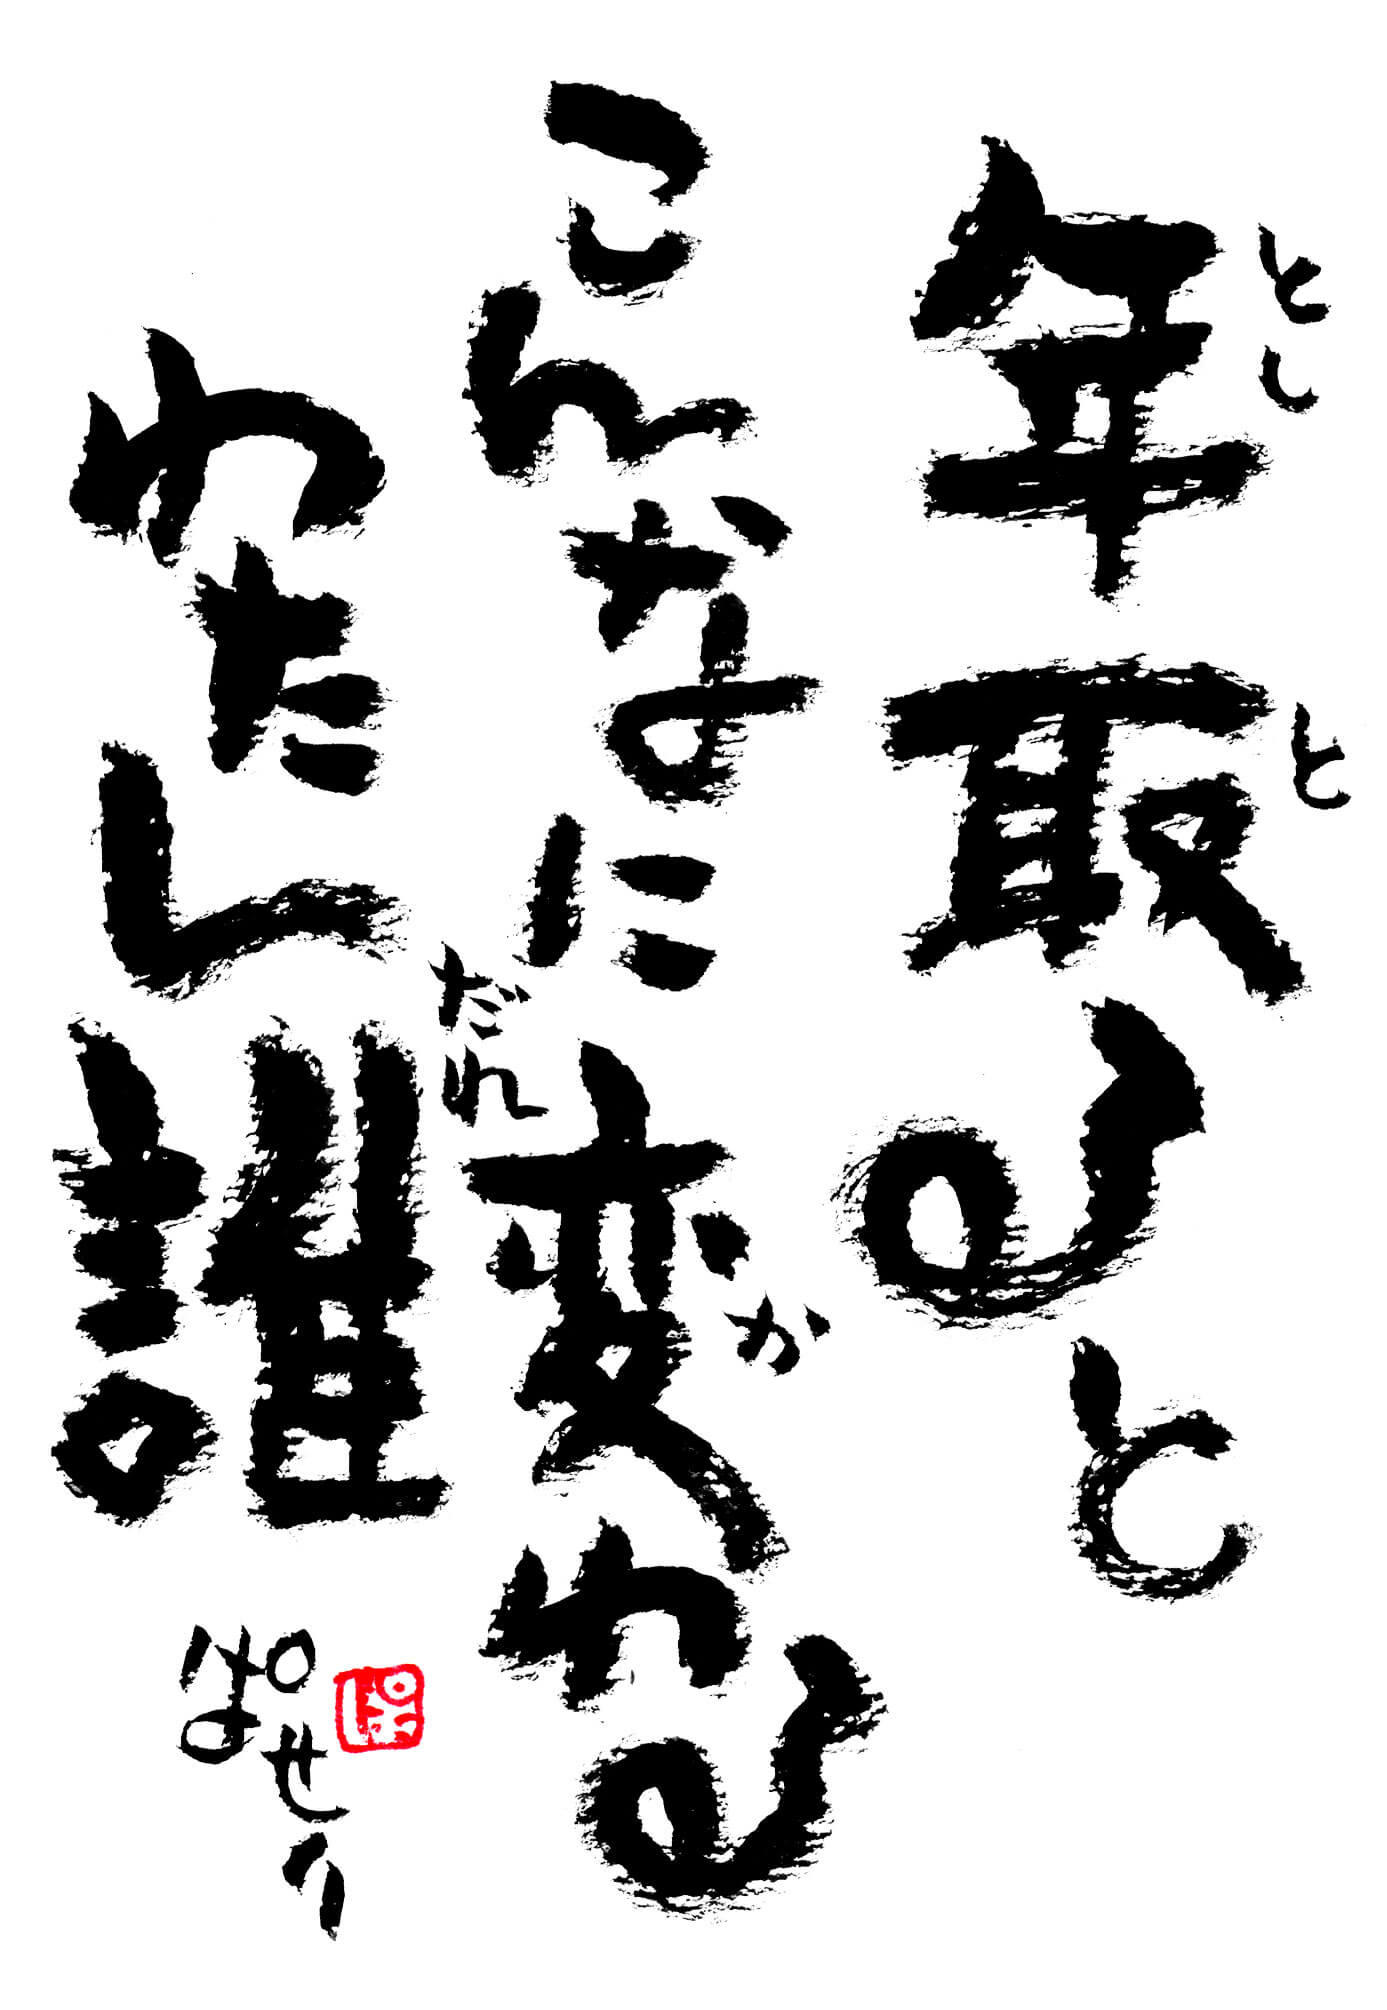 年取ると
とし
と
こんなに変わる
か
わたし誰
だれ
ぱせり
ぱ